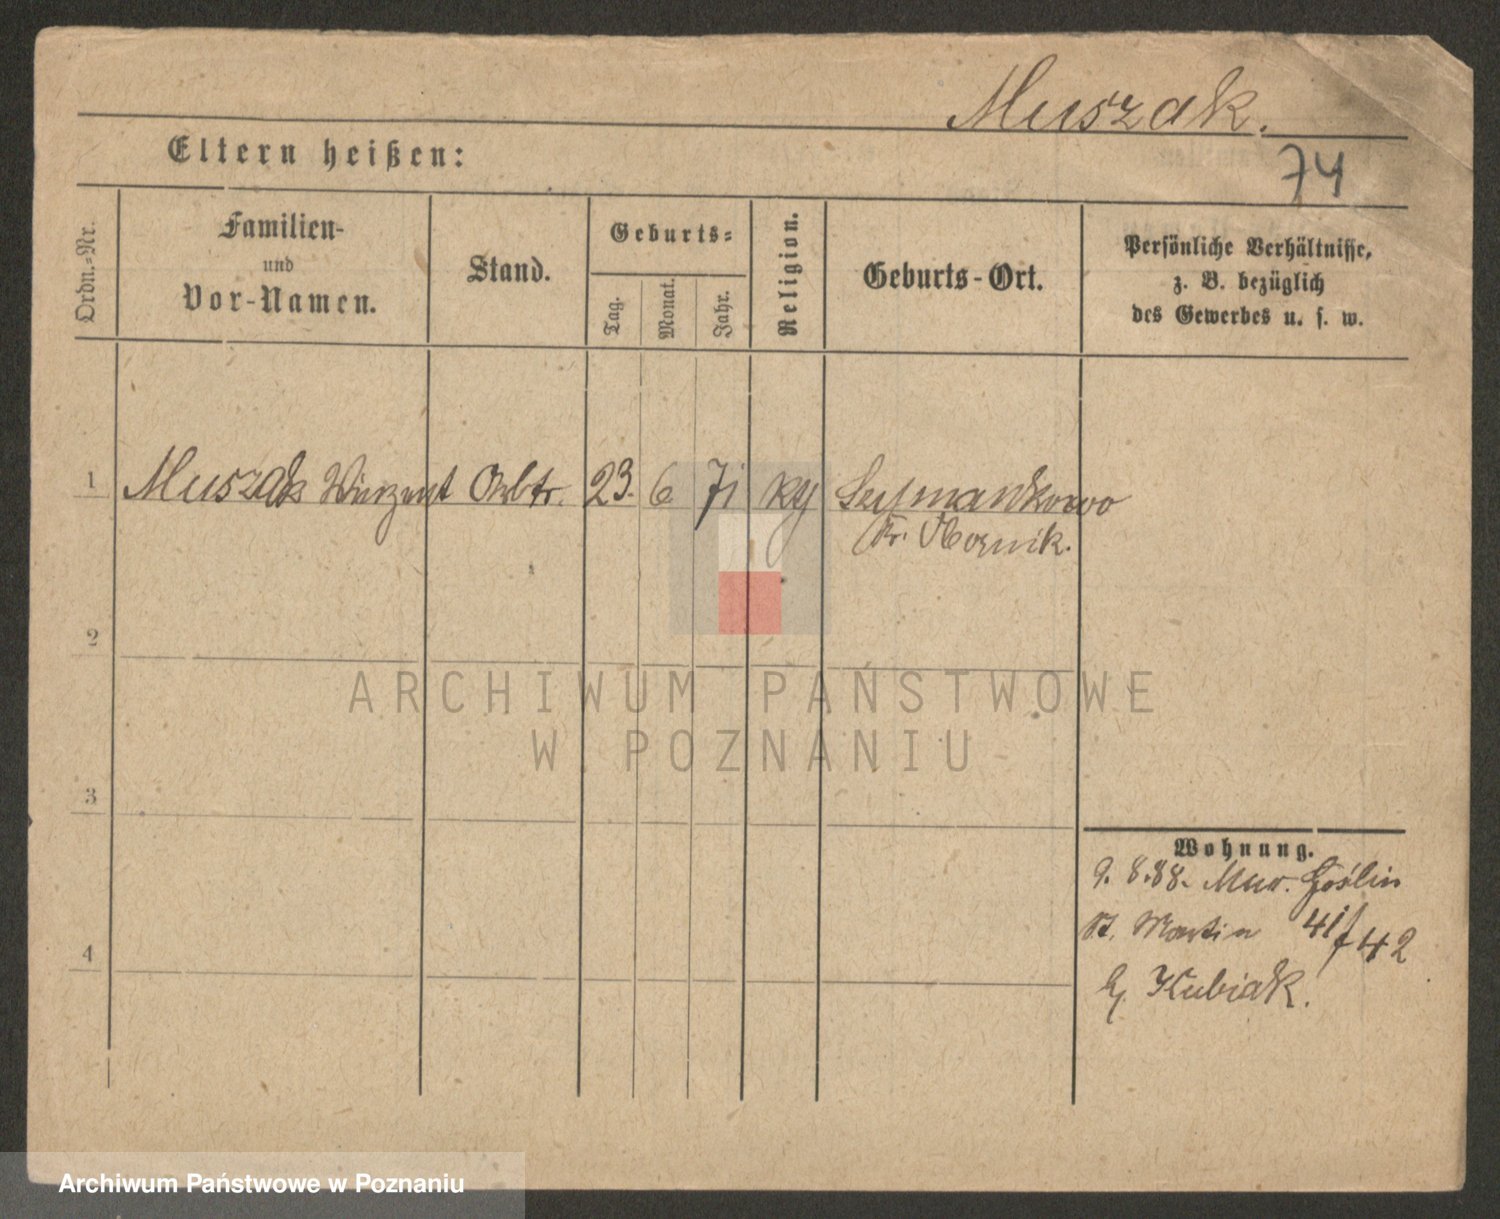 Muszak.
74
Eltern heißen:
Ordn.-Nr.
Familien-
und
Vor-Namen.
Stand.
Geburts-
Tag.
Monat.
Jahr.
Religion.
Geburts-Ort.
Persönliche Verhältnisse,
z. B. bezüglich
des Gewerbes u. s. w.
1 Muszak Vinzent Arbtr. 23. 6 71 Szymankowo
Kr. Obornik.
2
3
4
Wohnung.
9. 8.88. Mur. Goślin
St. Martin 41/42
b/ Kubiak.
ARCHIWUM PAŃSTWOWE
W POZNANIU
Archiwum Państwowe w Poznaniu